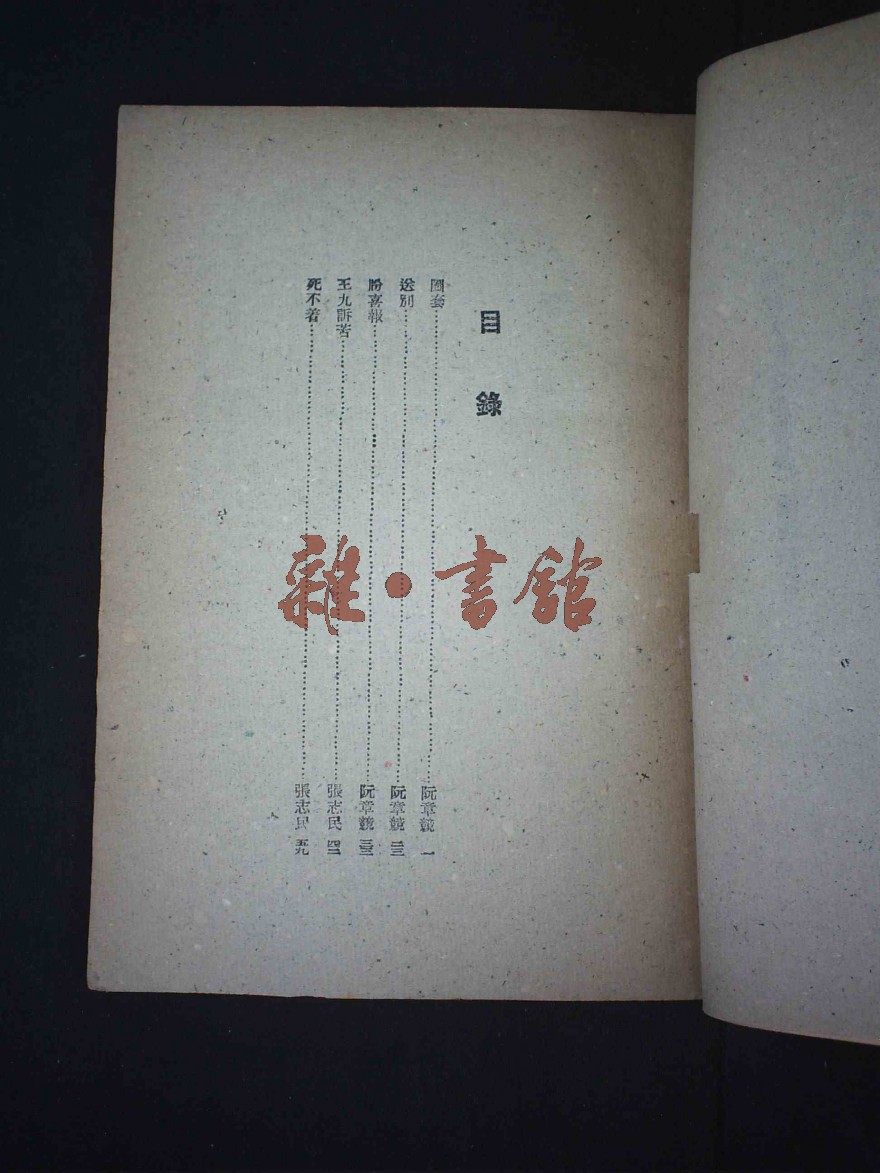 目錄
圈套……阮章競 一
送別……阮章競 二三
盼喜報……阮章競
王九訴苦……張志民
死不着……張志民 五九
雜·書館